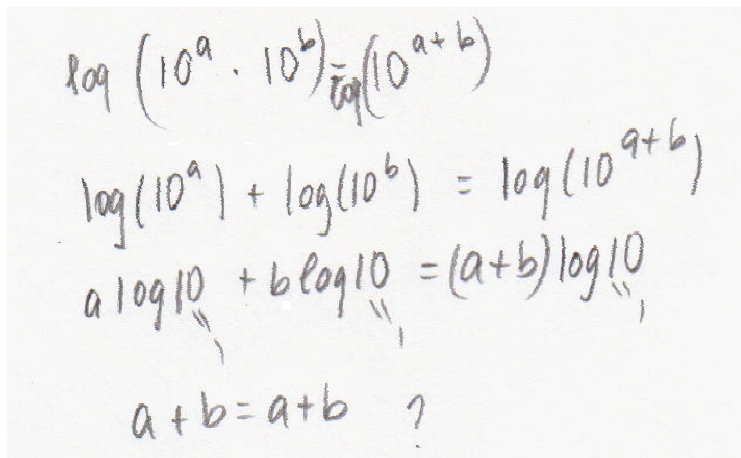 log (10^a · 10^b) = log(10^{a+b})
log(10^a) + log(10^b) = log(10^{a+b})
a log10 + b log10 = (a+b) log10
" 1 " 1 " 1
a + b = a + b ?